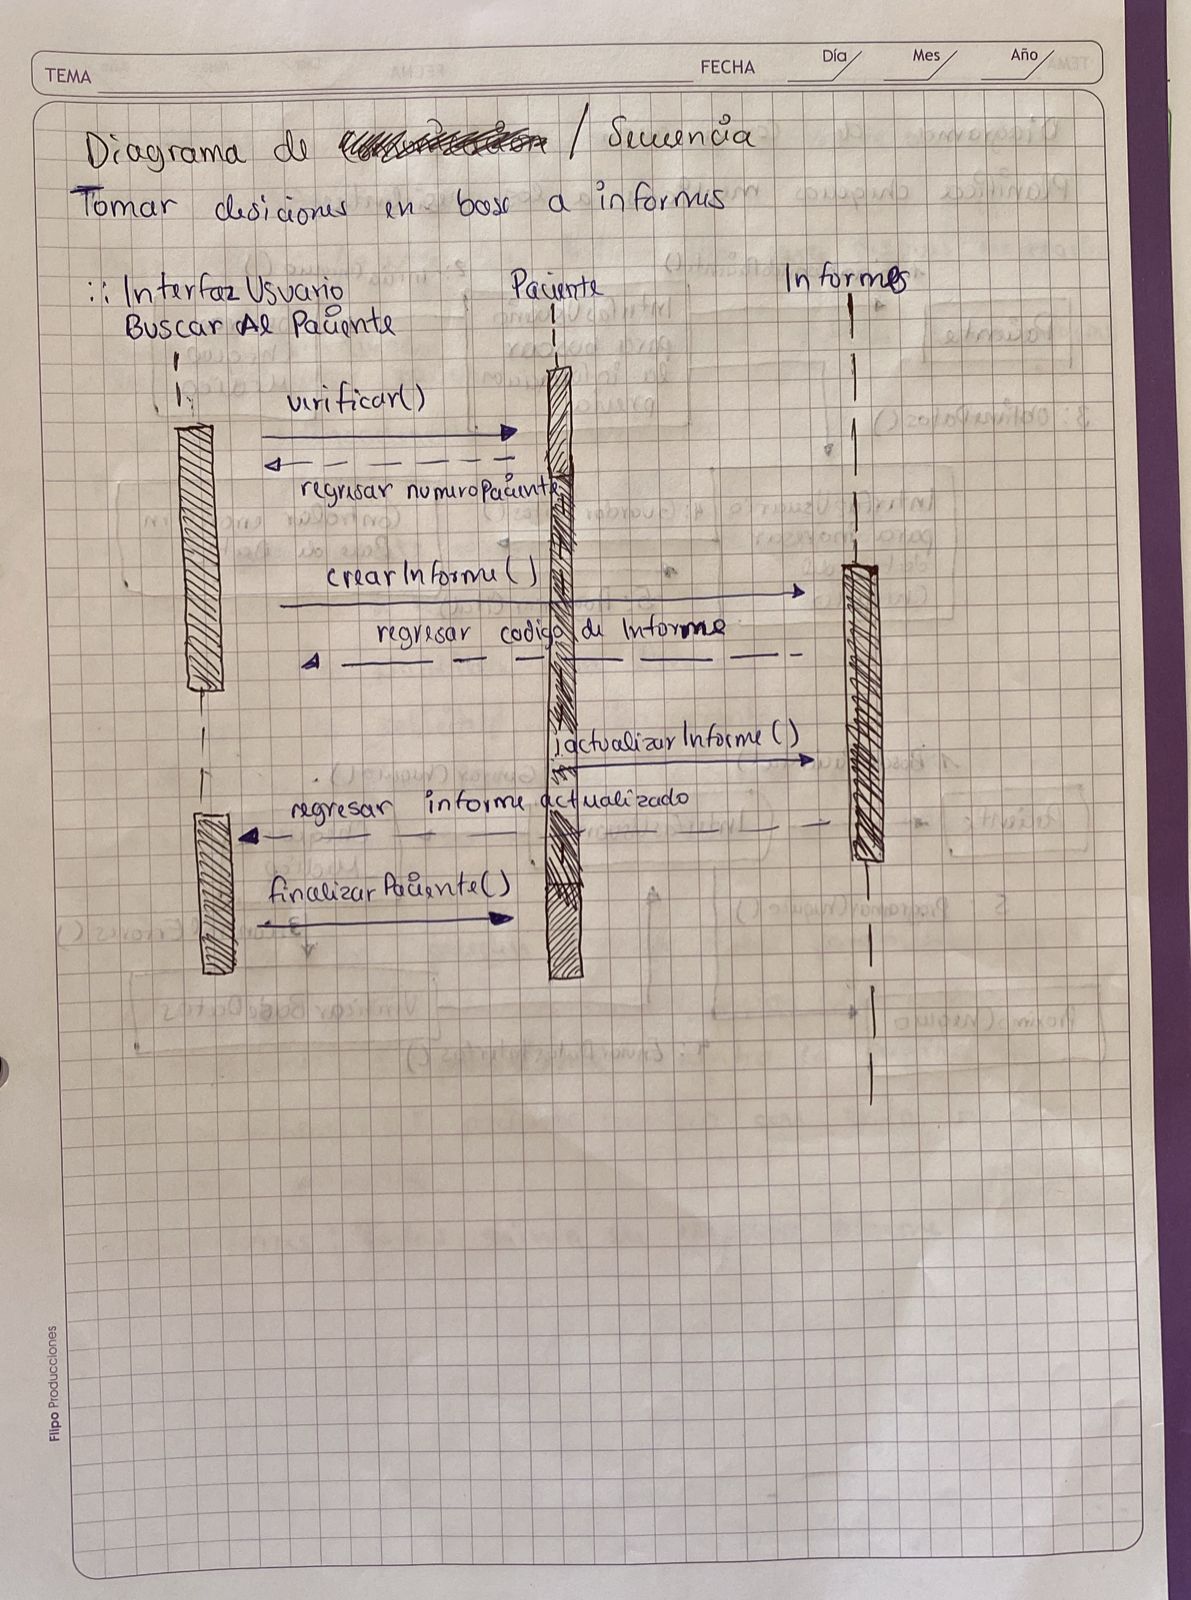 TEMA
FECHA
Día
Mes
Año
Diagrama de / Secuencia
Tomar desiciones en base a informes
:: Interfaz Usuario
Buscar Al Paciente
Paciente
Informes
verificar()
regresar numero Paciente
crearInforme()
regresar codigo de Informe
actualizarInforme()
regresar informe actualizado
finalizarPaciente()
Filipo Producciones